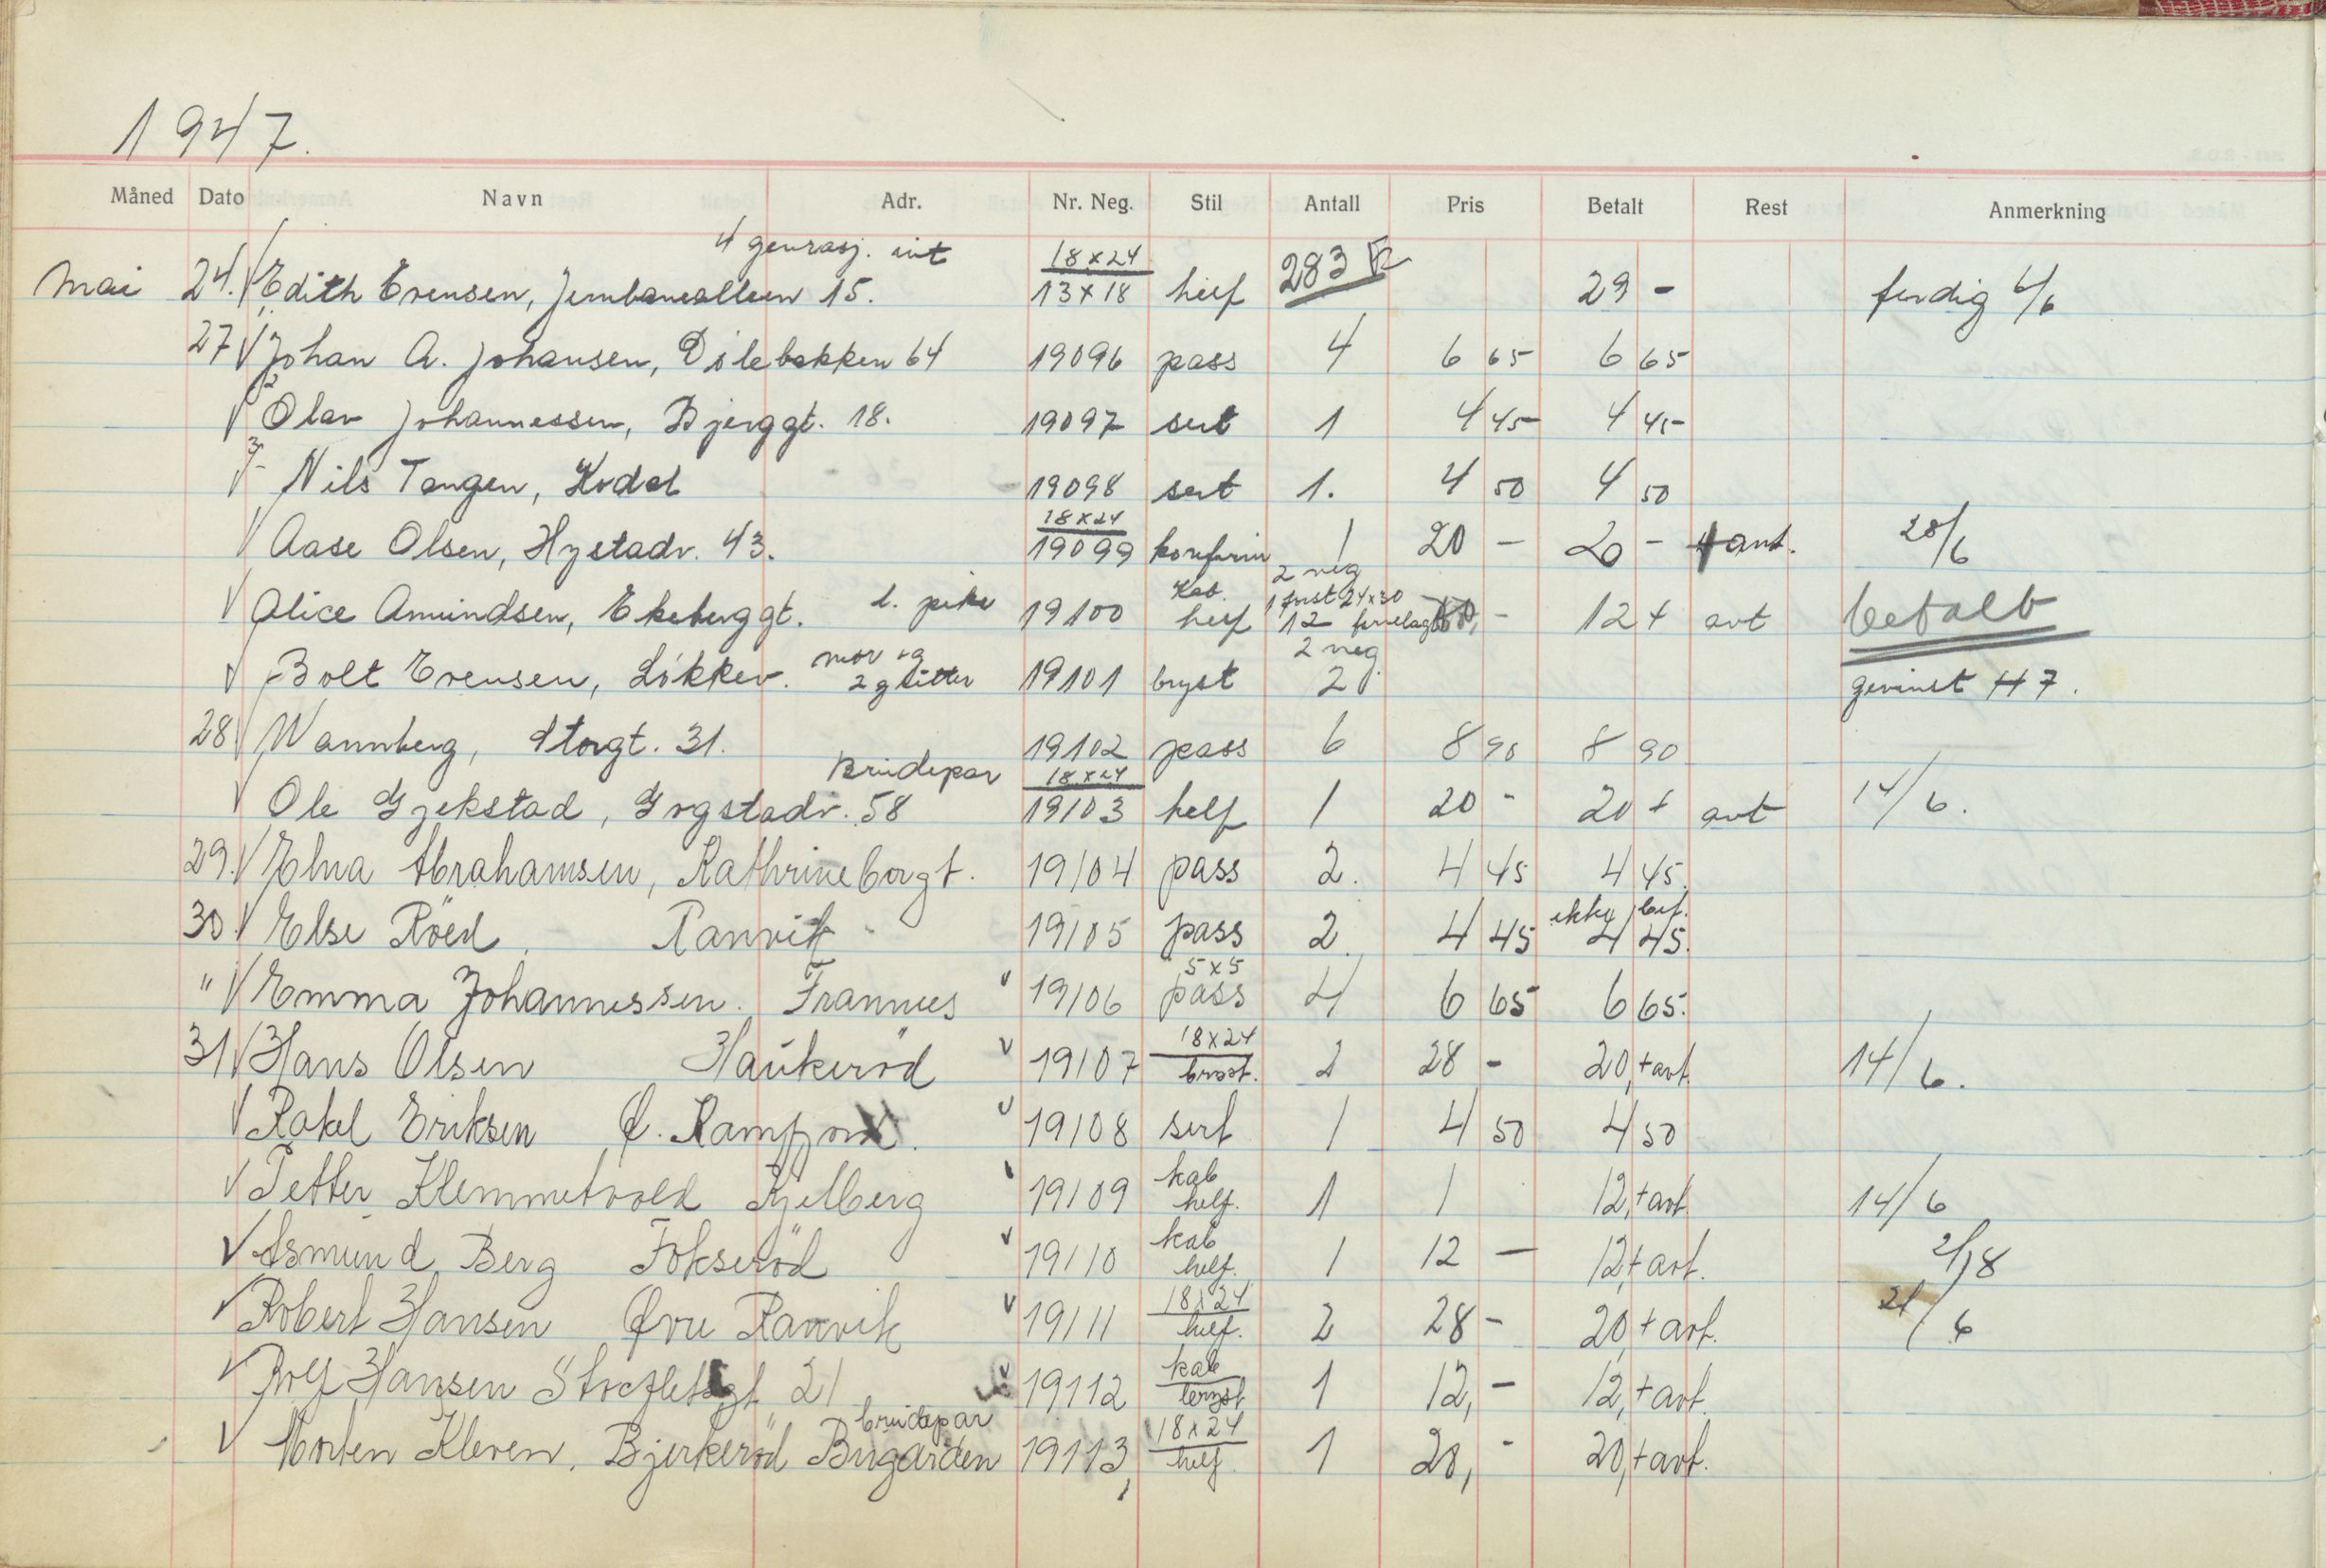 1947.
Måned Dato Navn Adr. Nr. Neg. Stil Antall Pris Betalt Rest Anmerkning
4 genrasj. int
Mai 24. Edith Evensen, Jernbanealleen 15. 18x24 13x18 helf 283 29 - ferdig 6/6
27 Johan A. Johansen, Dølebakken 64 19096 pass 4 6 65 6 65
Olav Johannessen, Bjerggt. 18. 19097 sert 1 4 45 4 45
Nils Tangen, Kodal 19098 sert 1. 4 50 4 50
Aase Olsen, Hystadv. 43. 18x24 19099 konfirm 1 20 - 20 - + ant. 28/6
Alice Amundsen, Ekeberggt. l. pike 19100 Kab. helf 2 neg 12 - 12 + avt betalt
Bolt Evensen, Løkkev. mor og 2 gutter 19101 bryst 2 neg. 2 gevinst H 7.
28 Wannberg, Storgt. 31. 19102 pass 6 8 90 8 90
Brudepar
Ole Gjekstad, Gogstadv. 58 18x24 19103 helf 1 20 - 20 + avt 14/6.
29. Elna Abrahamsen, Kathrineborgt. 19104 pass 2. 4 45 4 45.
30. Else Röed Ranvik 19105 pass 2 4 45 ikke bet. 4 45.
" Emma Johannessen. Frannes 19106 5x5 pass 4 6 65 6 65.
31 Hans Olsen Haukeröd 19107 18x24 bryst. 2 28 - 20,+avt. 14/6.
Rakel Eriksen Ø. Kamfjord. 19108 sert 1 4 50 4 50
Petter Klemmetvold Kjelberg 19109 kab helf. 1 1 12,+avt. 14/6
Asmund Berg Fokseröd 19110 kab helf. 1 12 - 12,+avt. 2/8
Robert Hansen Øvre Ranvik 19111 18x24 helf. 2 28 - 20,+avt. 21/6
Rolf Hansen 21 19112 kab bryst 1 12,- 12,+avt.
brudepar
Morten Kleven, Bjerkeröd Bugården 19113, 18x24 helf 1 20,- 20,+avt.